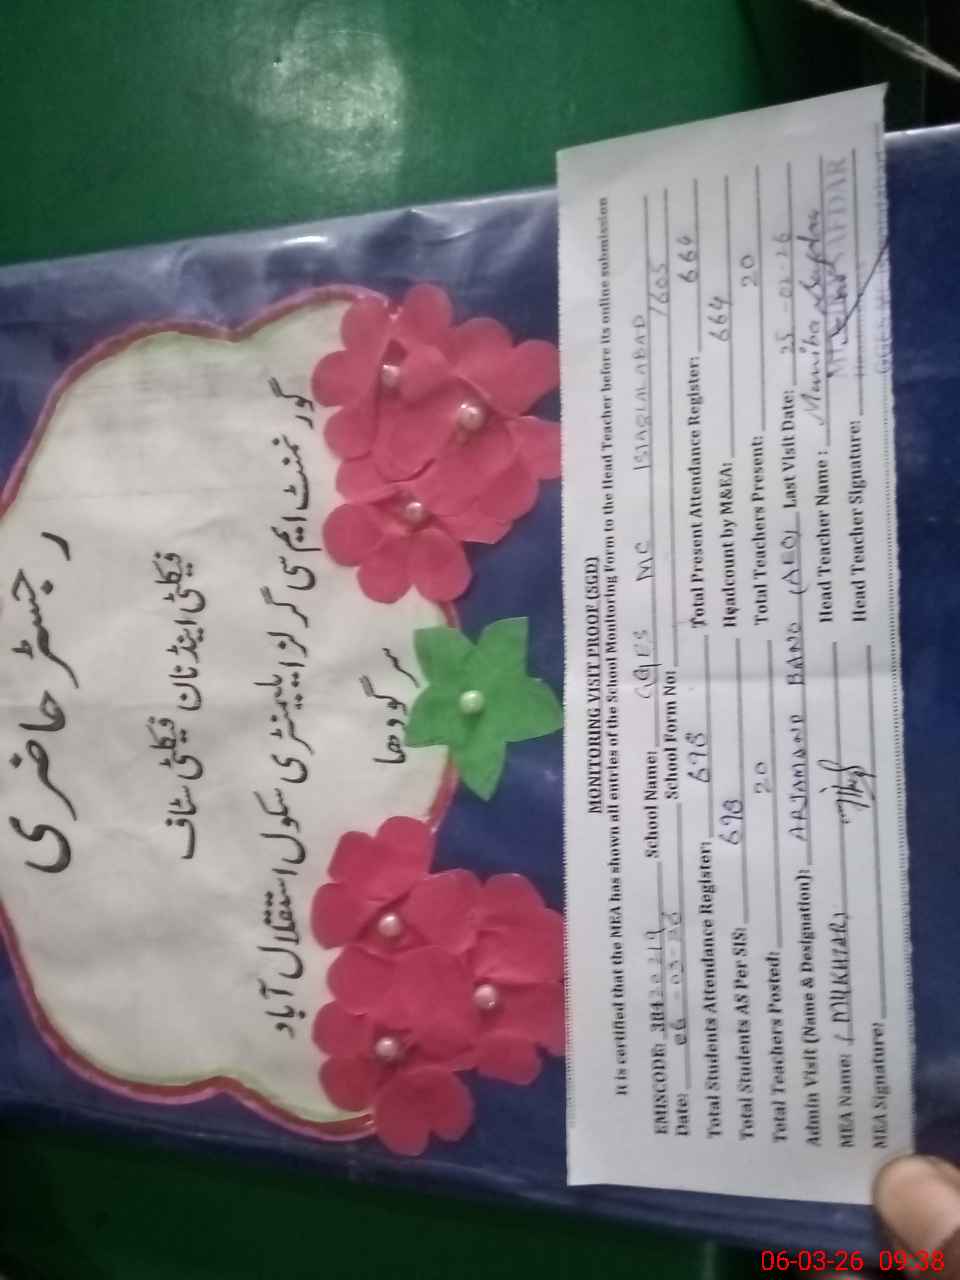 رجسٹر حاضری
فیکلٹی اینڈ نان فیکلٹی سٹاف
گورنمنٹ ایم سی گرلز ایلیمنٹری سکول استقلال آباد
سرگودھا
MONITORING VISIT PROOF (SGD)
It is certified that the MEA has shown all entries of the School Monitoring Form to the Head Teacher before its online submission
EMISCODE: 38420219 School Name: GGES MC ISTAQLALABAD
Date: 06-03-26 School Form No: 1605
Total Students Attendance Register: 698 Total Present Attendance Register: 664
Total Students AS Per SIS: 698 Headcount by M&EA: 664
Total Teachers Posted: 20 Total Teachers Present: 20
Admin Visit (Name & Designation): ARJAMAND BANO (AEO) Last Visit Date: 25-02-26
MEA Name: I MUKHTAR Head Teacher Name: Muniba Safdar
MEA Signature: Head Teacher Signature:
SAFDAR
06-03-26 09:38